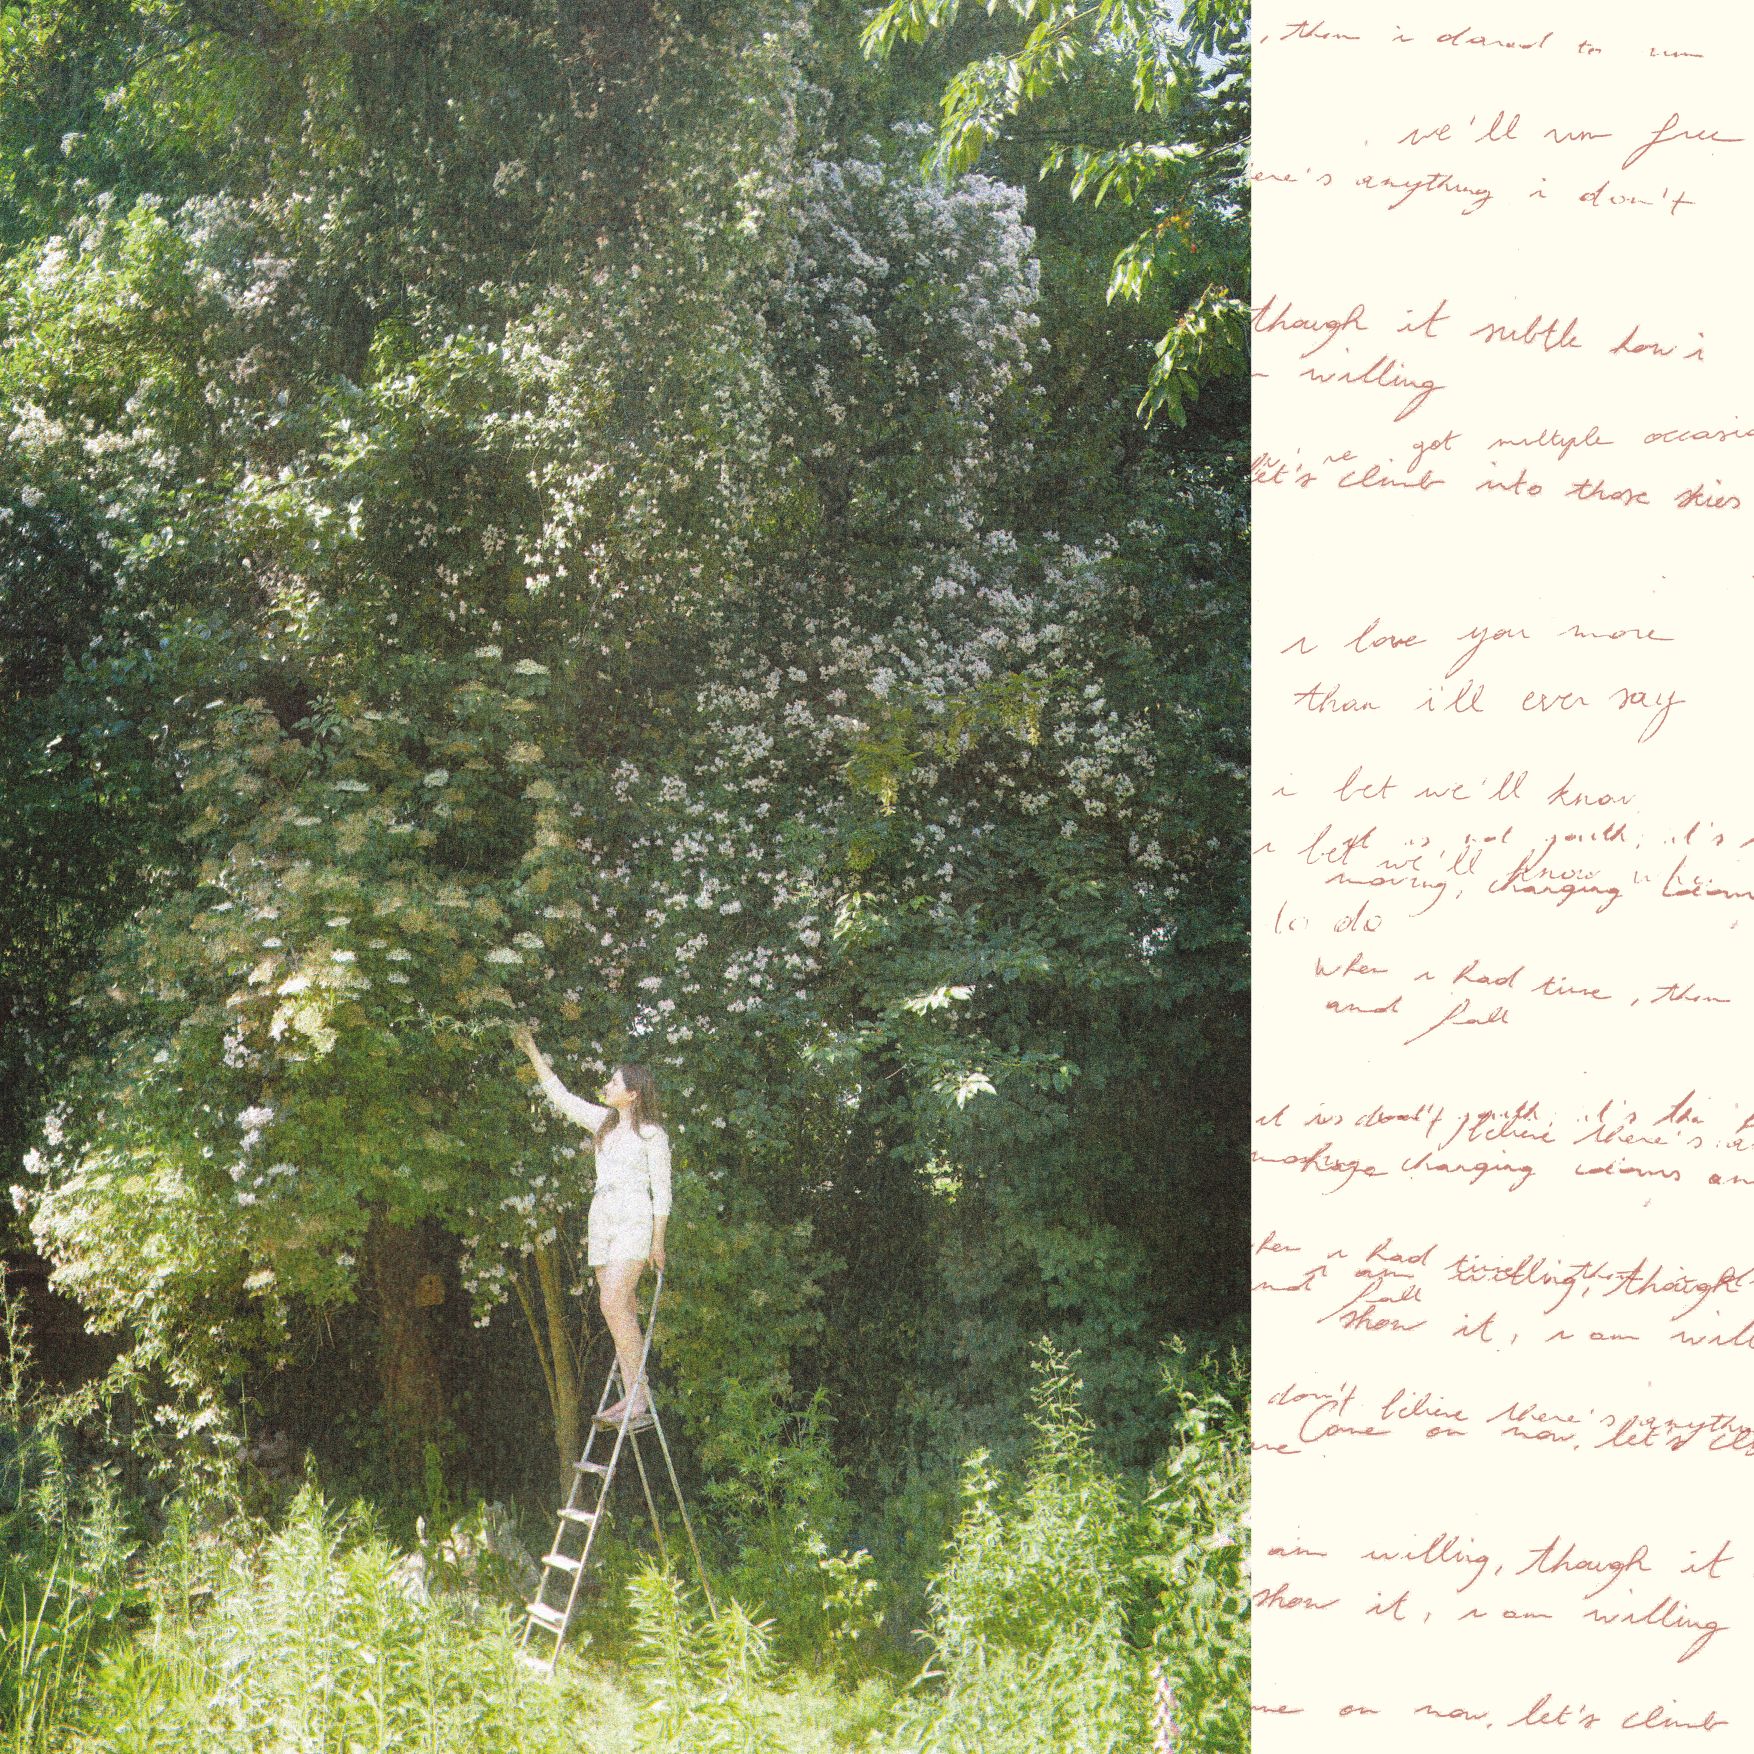 , then i dared to run
we'll run free
ere's anything i don't
though it subtle how i
willing
got multiple occasio
let's climb into those skies
i love you more
than i'll ever say
i bet we'll know
it is not youth, it's
i bet we'll know
moving, changing
to do
when i had time, then
and fall
it is don't youth, it's
believe there's
changing
hen i had
i am willing, though
fall
show it, i am will
don't believe there's anythin
Come on now, let's cli
am willing, though it
show it, i am willing
me on now, let's climb